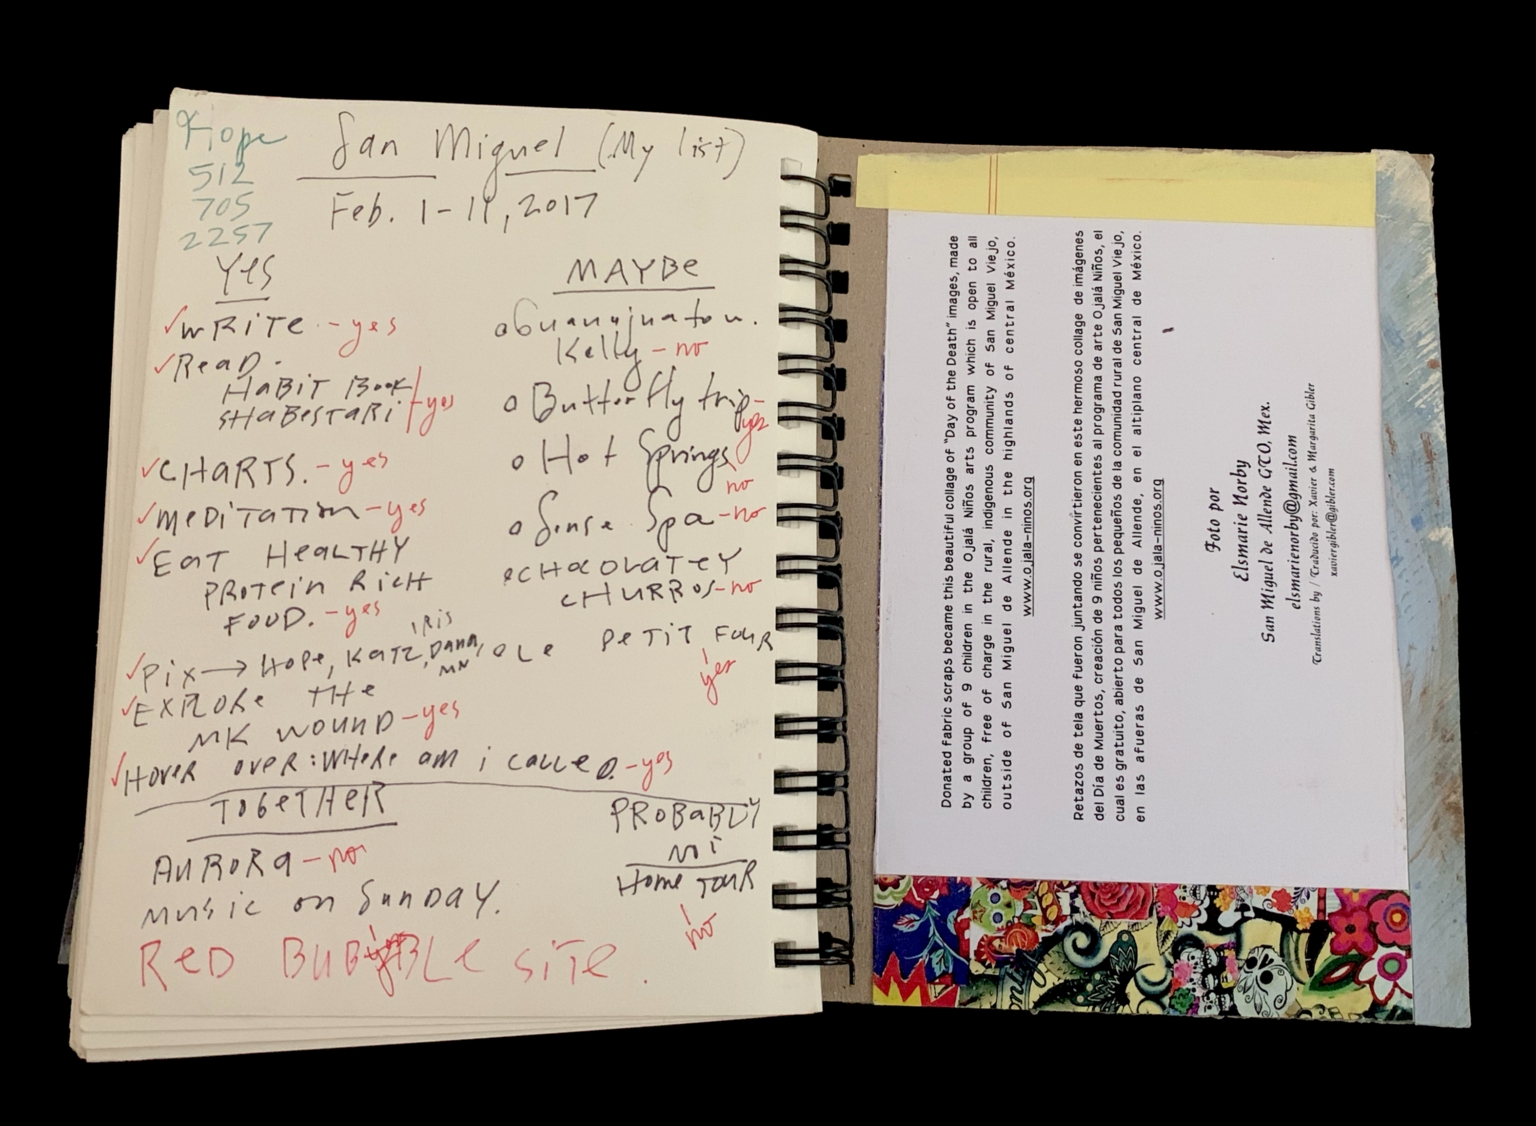 Hope
512
705
2257
San Miguel (My list)
Feb. 1-11, 2017
YES
✓WRITE - yes
✓READ -
HABIT BOOK
SHABESTARI - yes
✓CHARTS. - yes
✓MEDITATION - yes
✓EAT HEALTHY
PROTEIN RICH
FOOD. - yes
IRIS
✓PIX → HOPE, KATZ, DANA, OLE
MN
✓EXPLORE THE
MK WOUND - yes
✓HOVER OVER: WHERE AM I CALLED. - yes
MAYBE
o Guanajuato w.
Kelly - no
o Butterfly trip -
yes
o Hot Springs
no
o Sense Spa - no
o CHOCOLATEY
CHURROS - no
PETIT FOUR
yes
TOGETHER
AURORA - no
MUSIC on SUNDAY.
yes
RED BUBBLE SITE.
PROBABLY
NOT
HOME TOUR
no
Donated fabric scraps became this beautiful collage of "Day of the Death" images, made
by a group of 9 children in the Ojalá Niños arts program which is open to all
children, free of charge in the rural, indigenous community of San Miguel Viejo,
outside of San Miguel de Allende in the highlands of central México.
www.ojala-ninos.org
Retazos de tela que fueron juntando se convirtieron en este hermoso collage de imágenes
del Día de Muertos, creación de 9 niños pertenecientes al programa de arte Ojalá Niños, el
cual es gratuito, abierto para todos los pequeños de la comunidad rural de San Miguel Viejo,
en las afueras de San Miguel de Allende, en el altiplano central de México.
www.ojala-ninos.org
Foto por
Elsmarie Norby
San Miguel de Allende GTO, Mex.
elsmarienorby@gmail.com
Translations by / Traducido por: Xavier & Margarita Gibler
xaviergibler@gibler.com